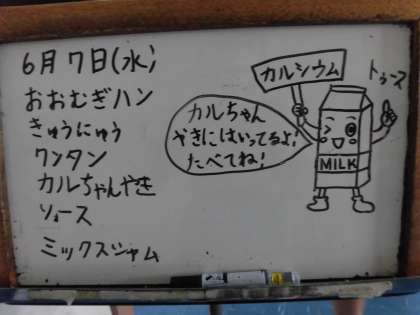 6月7日(水)
おおむぎハン
きゅうにゅう
ワンタン
カルちゃんやき
ソース
ミックスジャム
カルシウム
トゥース
カルちゃん
やきにはいってるよ!
たべてね!
MILK